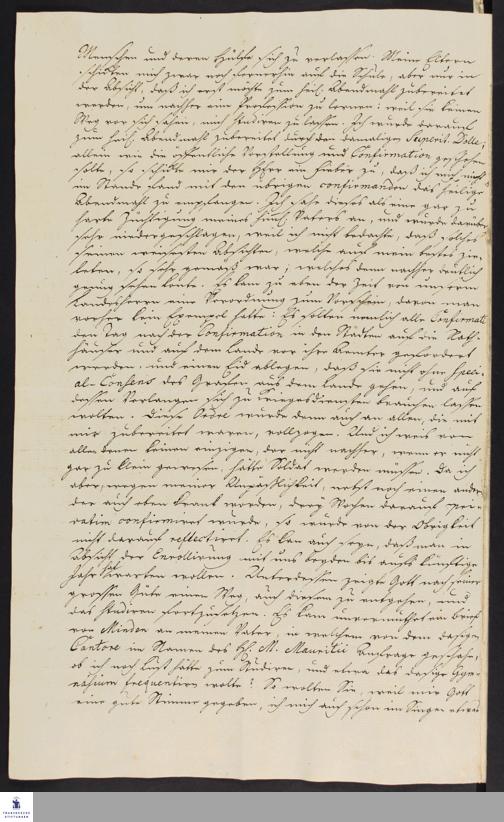 Menschen und deren Hülfe sich zu verlassen. Meine Eltern
schickten mich zwar noch fernerhin auf die Schule, aber nur in
der Absicht, daß ich erst möchte zum heil. Abendmahl zubereitet
werden, um nachher eine Profession zu lernen: weil sie keinen
Weg vor sich sahen, mich studiren zu lassen. Ich wurde darauf
zum heil. Abendmahl zubereitet durch den damaligen Superint. Dolle;
allein wie die öffentliche Vorstellung und Confirmation geschehen
solte, so schickte mir der Herr ein Fieber zu, daß ich mich nicht
im Stande fand mit den übrigen confirmanden das heilige
Abendmahl zu empfangen. Ich sahe dieses als eine gar zu
harte Züchtigung meines himl. Vaters an, und wurde darüber
sehr niedergeschlagen, weil ich nicht bedachte, daß solches
seinen weisesten Absichten, welche auf mein bestes zie-
leten, so sehr gemäß war; welches denn nachher deutlich
genug sehen konte. Es kam zu eben der Zeit von unserm
Landesherrn eine Verordnung zum Vorschein, davon man
vorher kein Exempel hatte: Es solten nemlich alle Confirmati
den Tag nach der Confirmation in den Städten auf die Rath-
häuser und auf dem Lande vor ihre Aemter gefordert
werden, und einen Eid ablegen, daß sie nicht ohne speci-
al-Consens des Grafen aus dem Lande gehen, und auf
dessen Verlangen sich zu Kriegsdiensten brauchen lassen
wolten. Diese Ordre wurde denn auch an allen, die mit
mir zubereitet waren, vollzogen. Und ich weis von
allen denen keinen einzigen, der nicht nachher, wenn er nicht
gar zu klein gewesen, hätte Soldat werden müssen. Da ich
aber, wegen meiner Unpäßlichkeit, nebst noch einen andern
der auch eben krank worden, drey Wochen darauf pri-
vatim confirmiret wurde, so wurde von der Obrigkeit
nicht darauf reflectiret. Es kan auch seyn, daß man in
Absicht der Enrollirung mit uns beyden bis aufs künftige
Jahr hat warten wollen. Unterdessen zeigte Gott nach seiner
grossen Güte einen Weg, auch diesem zu entgehen, und
das studiren fortzusetzen. Es kam unvermuthet ein Brief
von Minden an meinen Vater, in welchem von dem dasigen
Cantore im Namen des H. M. Mauritii Anfrage geschahe,
ob ich noch Lust hätte zum Studiren, und etwa das dasige Gym-
nasium frequentiren wolte? So wolten Sie, weil mir Gott
eine gute Stimme gegeben, ich mich auch schon im Singen etwas
FRANCKESCHE
STIFTUNGEN